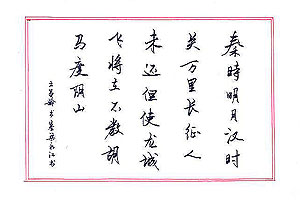 秦時明月汉时
关万里长征人
未还但使龙城
飞将在不教胡
马度阴山
王昌龄